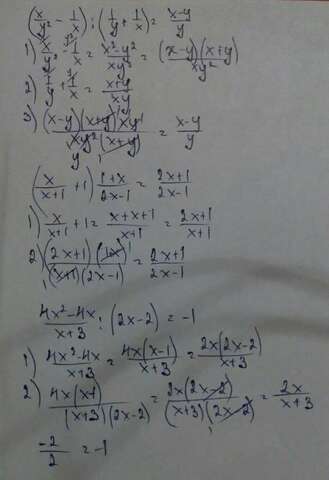 (x/y² - 1/x) : (1/y + 1/x) = x-y/y
1) x/y² - 1/x = x²-y²/xy² = (x-y)(x+y)/xy²
2) 1/y + 1/x = x+y/xy
3) (x-y)(x+y)xy/xy²(x+y) = x-y/y
(x/x+1 + 1) 1+x/2x-1 = 2x+1/2x-1
1) x/x+1 + 1 = x+x+1/x+1 = 2x+1/x+1
2) (2x+1)(1+x)/(x+1)(2x-1) = 2x+1/2x-1
4x²-4x/x+3 : (2x-2) = -1
1) 4x²-4x/x+3 = 4x(x-1)/x+3 = 2x(2x-2)/x+3
2) 4x(x-1)/(x+3)(2x-2) = 2x(2x-2)/(x+3)(2x-2) = 2x/x+3
-2/2 = -1